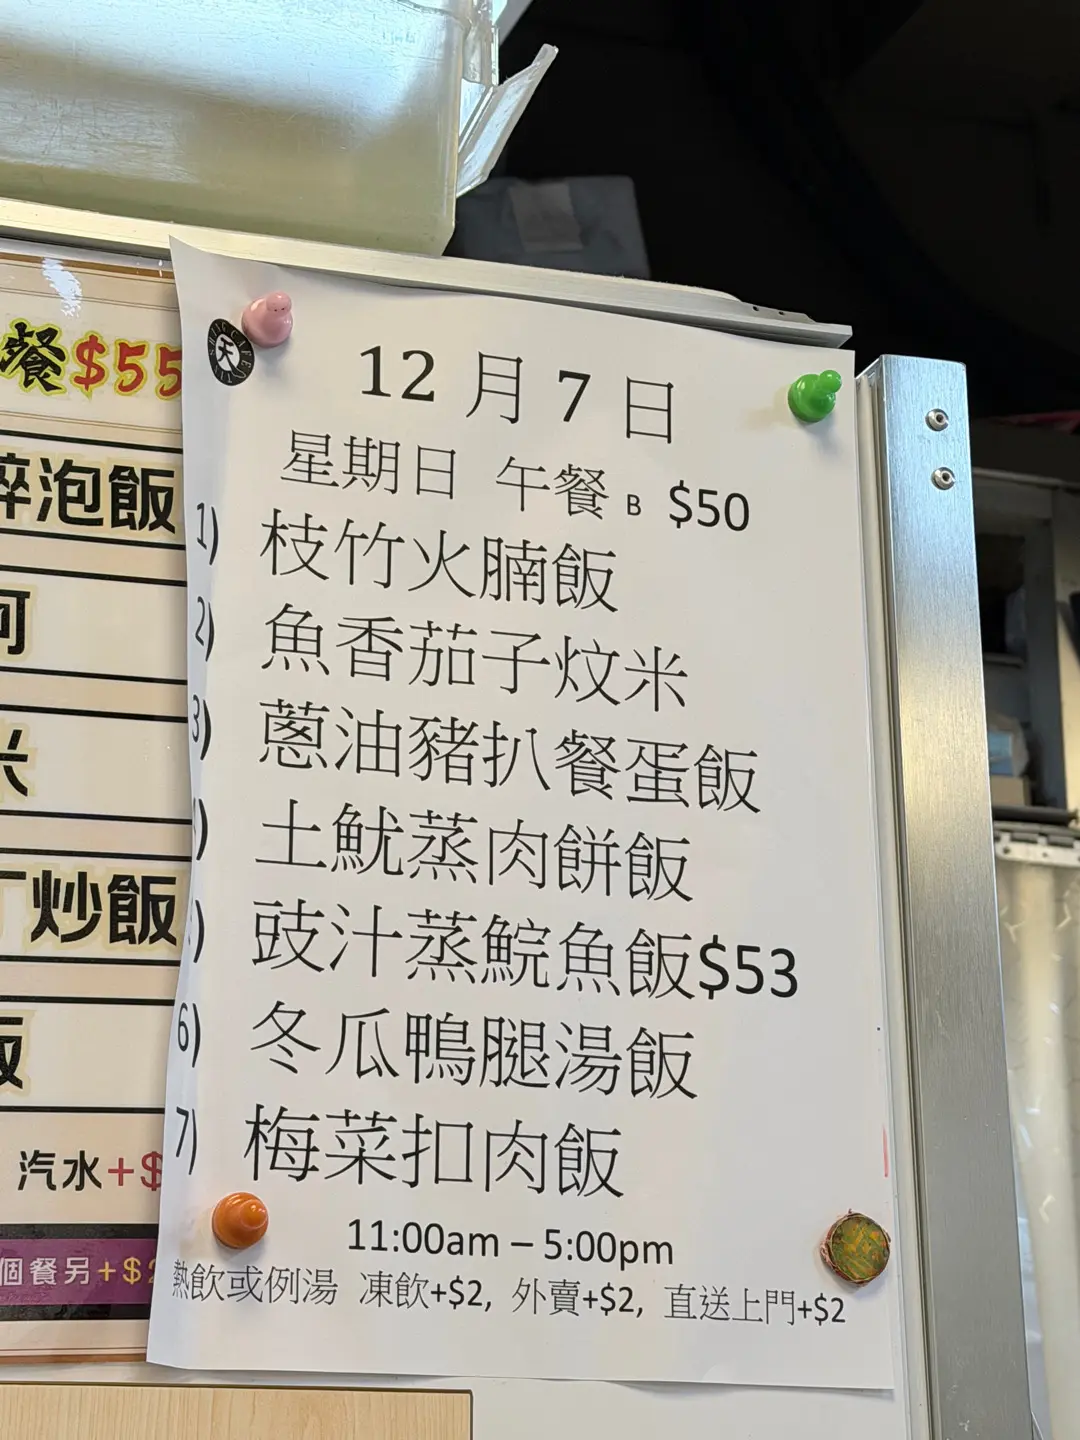 餐$55
泡飯
米
炒飯
飯
汽水+$
個餐另+$2
天
12 月 7 日
星期日 午餐 B $50
1) 枝竹火腩飯
2) 魚香茄子炆米
3) 蔥油豬扒餐蛋飯
) 土魷蒸肉餅飯
) 豉汁蒸鯇魚飯$53
6) 冬瓜鴨腿湯飯
7) 梅菜扣肉飯
11:00am – 5:00pm
熱飲或例湯 凍飲+$2, 外賣+$2, 直送上門+$2